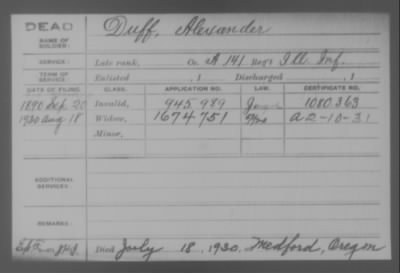 DEAD
NAME OF SOLDIER:
Duff, Alexander
SERVICE:
Late rank, Co. A 141 Reg't Ill. Inf.
TERM OF SERVICE:
Enlisted , 1 Discharged , 1
DATE OF FILING. CLASS. APPLICATION NO. LAW. CERTIFICATE NO.
1890 Sep. 20 Invalid, 945,989 1080363
1930 Aug 18 Widow, 1674751 A 2-10-31
Minor,
ADDITIONAL SERVICES:
REMARKS:
Died July 18, 1930, Medford, Oregon